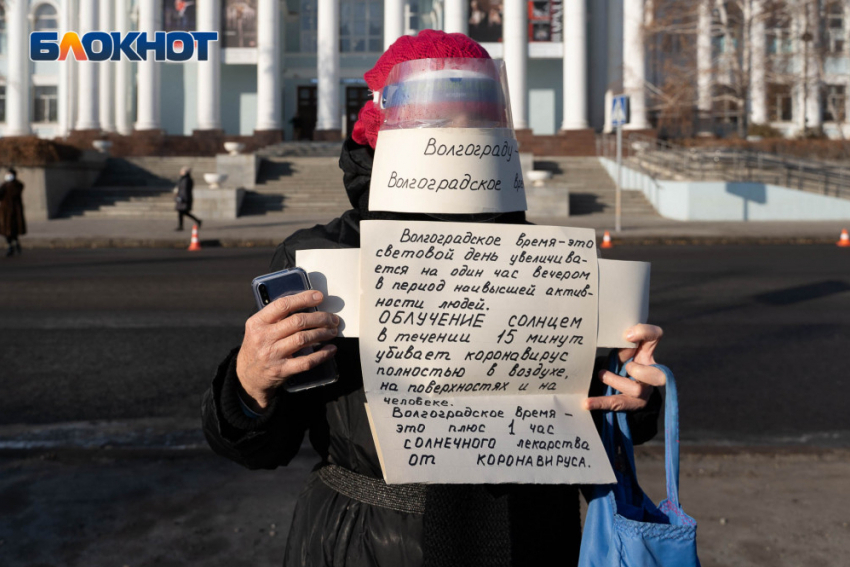 БЛОКНОТ
Волгограду-
Волгоградское вре
Волгоградское время-это
световой день увеличива-
ется на один час вечером
в период наивысшей актив-
ности людей.
ОБЛУЧЕНИЕ солнцем
в течении 15 минут
убивает коронавирус
полностью в воздухе,
на поверхностях и на
человеке.
Волгоградское время-
это плюс 1 час
солнечного лекарства
от коронавируса.